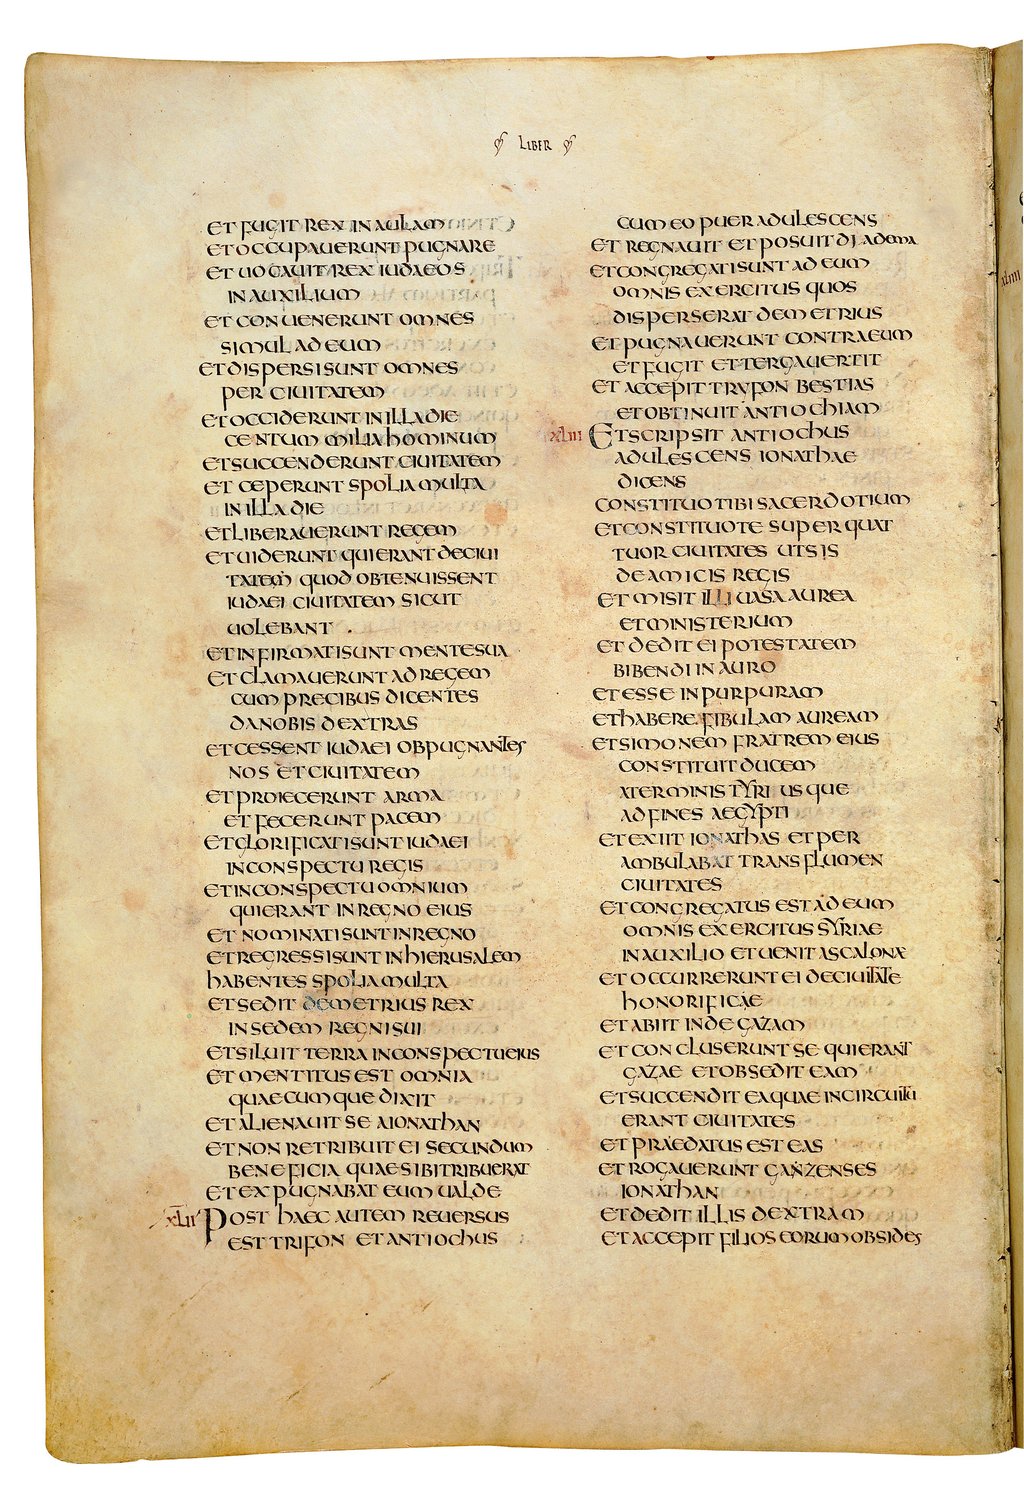 LIBER
ET FUGIT REX IN AULAM
ET OCCUPAUERUNT PUGNARE
ET UOCAUIT REX IUDAEOS
IN AUXILIUM
ET CONUENERUNT OMNES
SIMUL AD EUM
ET DISPERSI SUNT OMNES
PER CIUITATEM
ET OCCIDERUNT IN ILLA DIE
CENTUM MILIA HOMINUM
ET SUCCENDERUNT CIUITATEM
ET CEPERUNT SPOLIA MULTA
IN ILLA DIE
ET LIBERAUERUNT REGEM
ET UIDERUNT QUI ERANT DE CIUI
TATEM QUOD OBTENUISSENT
IUDAEI CIUITATEM SICUT
UOLEBANT
ET INFIRMATI SUNT MENTE SUA
ET CLAMAUERUNT AD REGEM
CUM PRECIBUS DICENTES
DA NOBIS DEXTRAS
ET CESSENT IUDAEI OBPUGNANTES
NOS ET CIUITATEM
ET PROIECERUNT ARMA
ET FECERUNT PACEM
ET GLORIFICATI SUNT IUDAEI
IN CONSPECTU REGIS
ET IN CONSPECTU OMNIUM
QUI ERANT IN REGNO EIUS
ET NOMINATI SUNT IN REGNO
ET REGRESSI SUNT IN HIERUSALEM
HABENTES SPOLIA MULTA
ET SEDIT DEMETRIUS REX
IN SEDEM REGNI SUI
ET SILUIT TERRA IN CONSPECTU EIUS
ET MENTITUS EST OMNIA
QUAECUMQUE DIXIT
ET ALIENAUIT SE A IONATHAN
ET NON RETRIBUIT EI SECUNDUM
BENEFICIA QUAE SIBI TRIBUERAT
ET EXPUGNABAT EUM UALDE
XLII POST HAEC AUTEM REUERSUS
EST TRIFON ET ANTIOCHUS
CUM EO PUER ADULESCENS
ET REGNAUIT ET POSUIT DIADEMA
ET CONGREGATI SUNT AD EUM
OMNIS EXERCITUS QUOS
DISPERSERAT DEMETRIUS
ET PUGNAUERUNT CONTRA EUM
ET FUGIT ET TERGA UERTIT
ET ACCEPIT TRYFON BESTIAS
ET OBTINUIT ANTIOCHIAM
XLIII ET SCRIPSIT ANTIOCHUS
ADULESCENS IONATHAE
DICENS
CONSTITUO TIBI SACERDOTIUM
ET CONSTITUO TE SUPER QUAT
TUOR CIUITATES UT SIS
DE AMICIS REGIS
ET MISIT ILLI UASA AUREA
ET MINISTERIUM
ET DEDIT EI POTESTATEM
BIBENDI IN AURO
ET ESSE IN PURPURAM
ET HABERE FIBULAM AUREAM
ET SIMONEM FRATREM EIUS
CONSTITUIT DUCEM
A TERMINIS TYRI USQUE
AD FINES AEGYPTI
ET EXIIT IONATHAS ET PER
AMBULABAT TRANS FLUMEN
CIUITATES
ET CONGREGATUS EST AD EUM
OMNIS EXERCITUS SYRIAE
IN AUXILIO ET UENIT ASCALONA
ET OCCURRERUNT EI DE CIUITATE
HONORIFICAE
ET ABIIT INDE GAZAM
ET CONCLUSERUNT SE QUI ERANT
GAZAE ET OBSEDIT EAM
ET SUCCENDIT EA QUAE IN CIRCUITU
ERANT CIUITATES
ET PRAEDATUS EST EAS
ET ROGAUERUNT GANZENSES
IONATHAN
ET DEDIT ILLIS DEXTRAM
ET ACCEPIT FILIOS EORUM OBSIDES